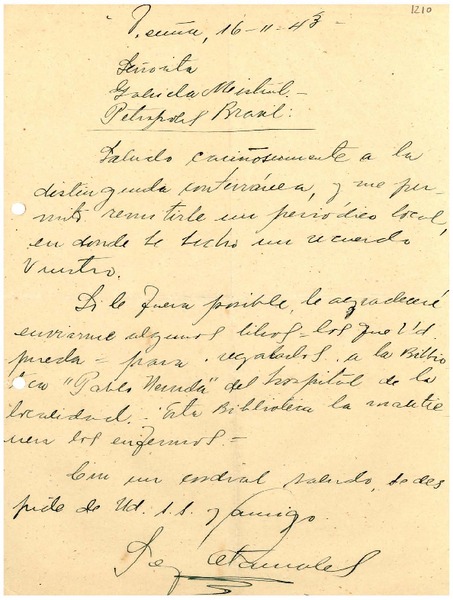 1210
Vicuña, 16-11-43
Señorita
Gabriela Mistral.-
Petropolis Brasil:
Saludo cariñosamente a la
distinguida conterránea, y me per
mito remitirle un periódico local,
en donde se hecho un recuerdo
Vuestro.
Si le fuera posible, le agradeceré
enviarme algunos libros - los que Ud.
pueda - para regalarlos a la Biblio
teca "Pablo Neruda" del hospital de la
localidad.- Esta Biblioteca la mantie
nen los enfermos.-
Con un cordial saludo, se des
pide de Ud. s.s. y amigo.